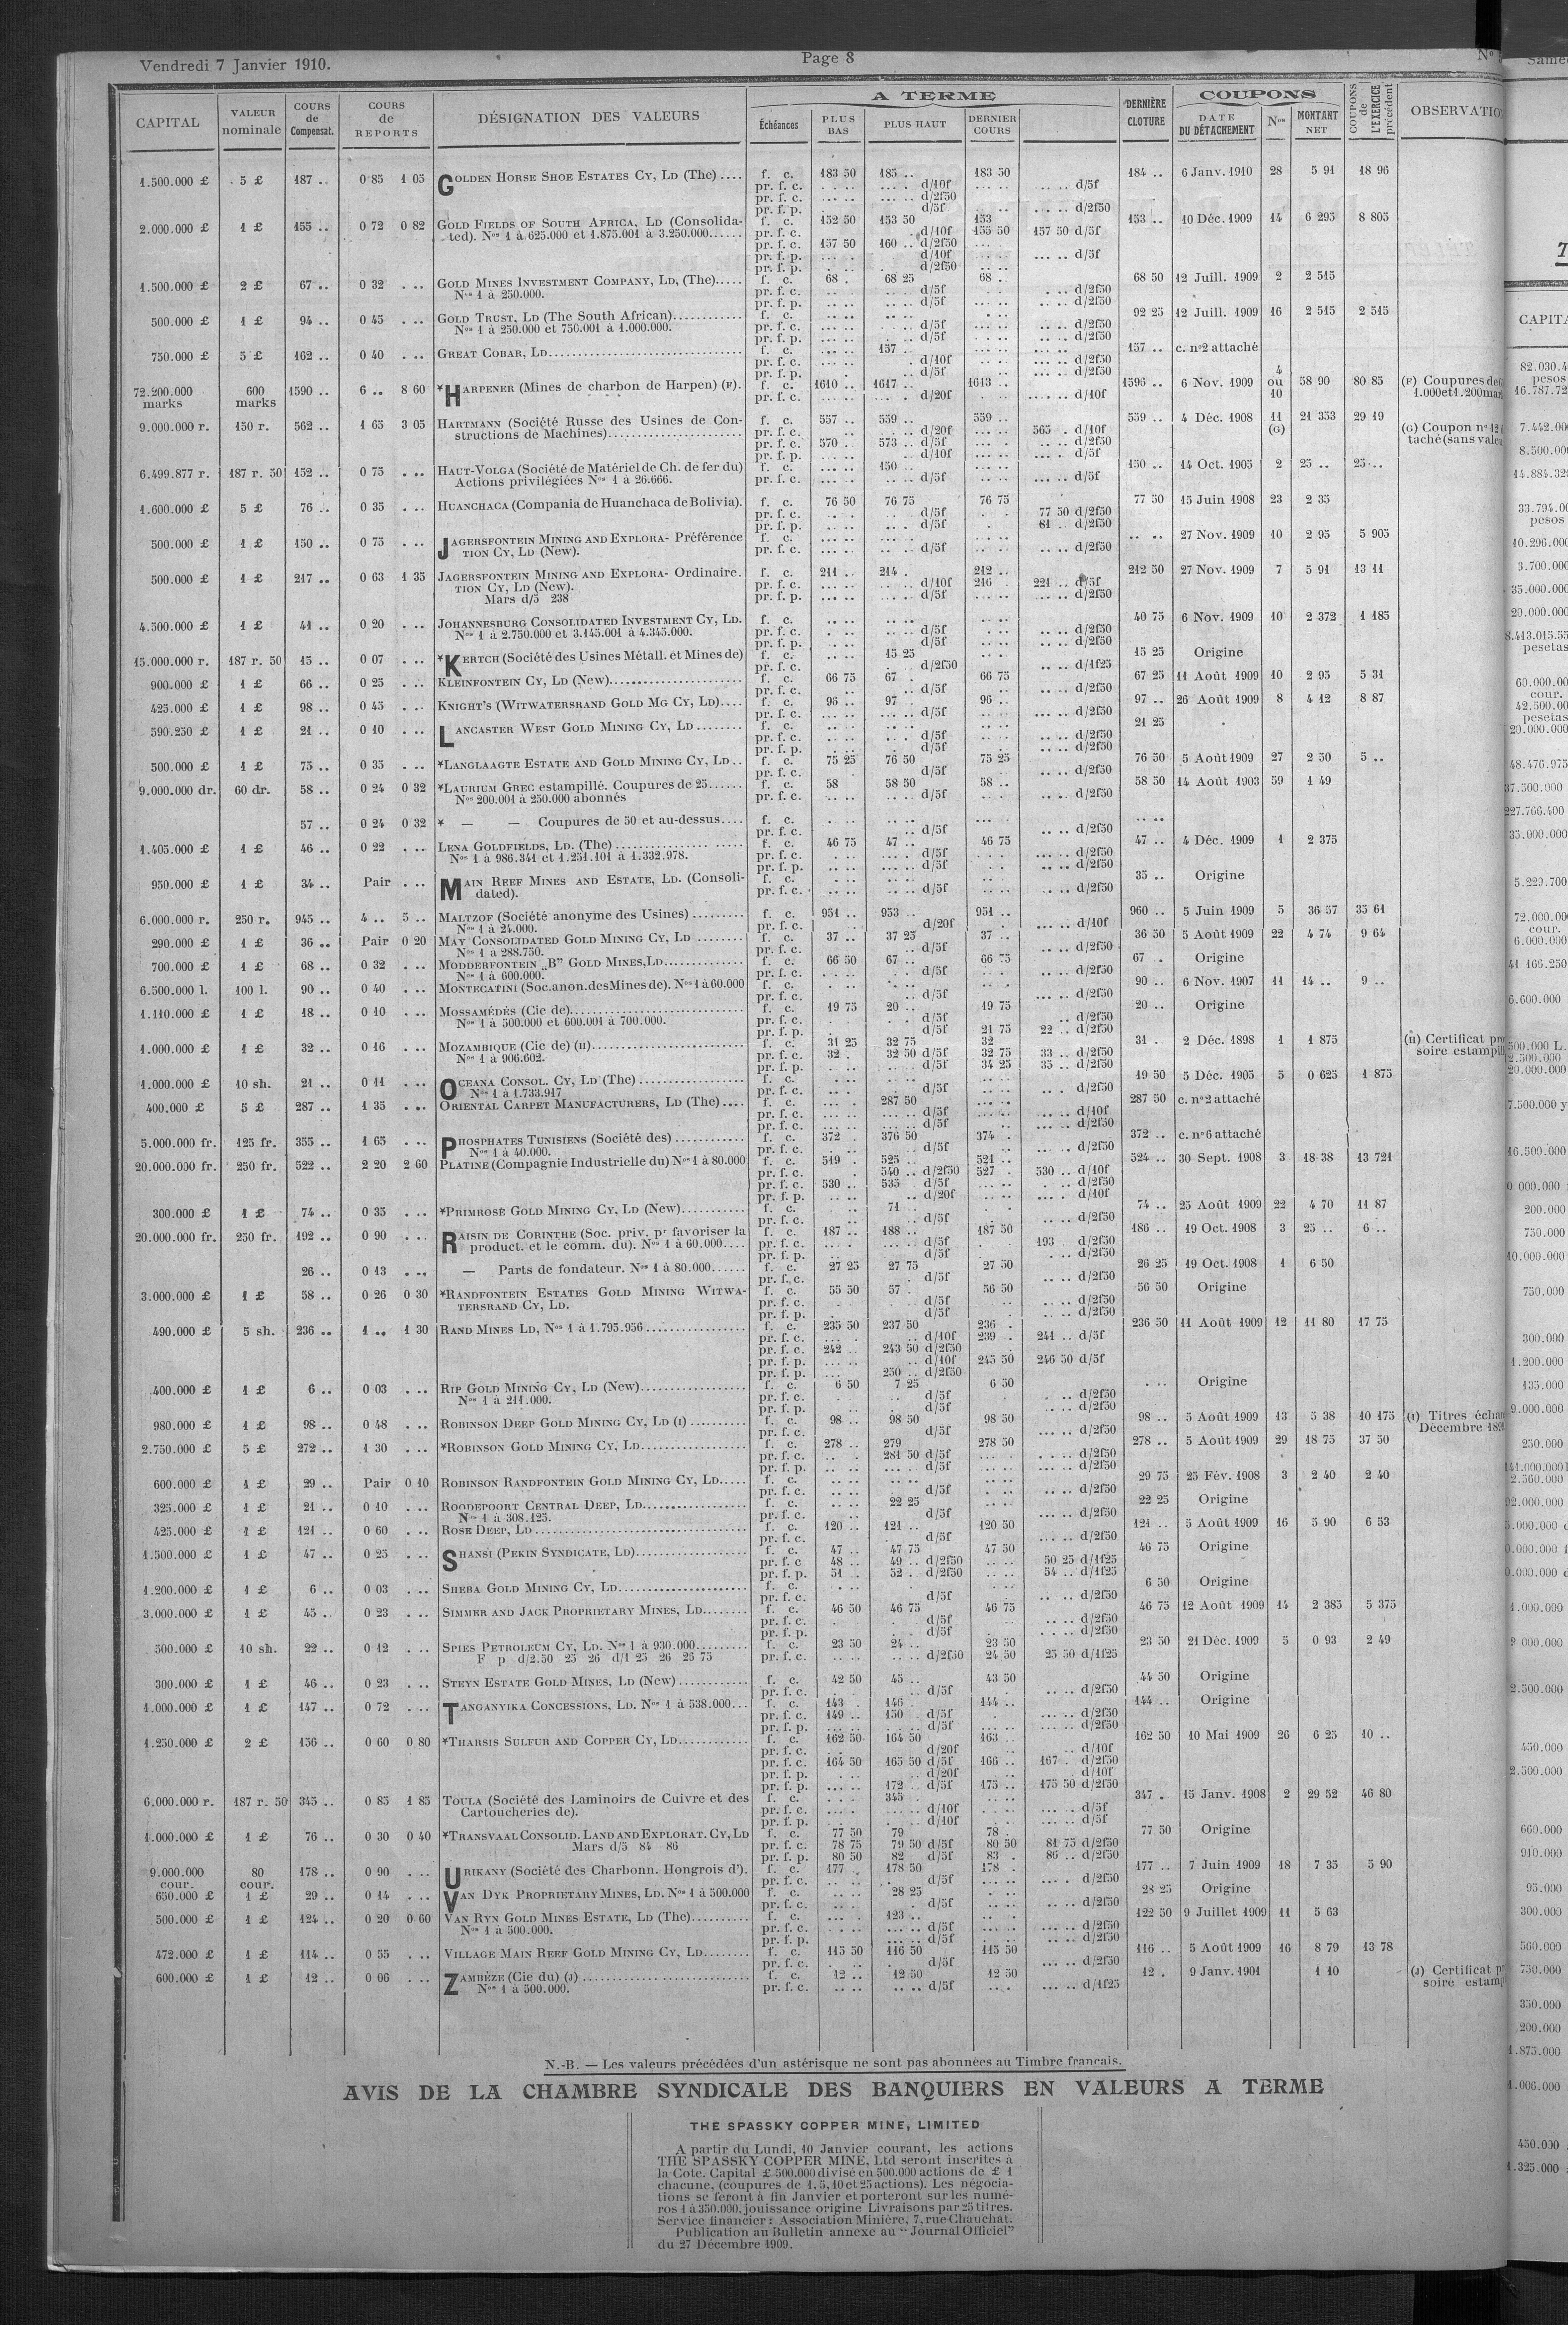 Vendredi 7 Janvier 1910.
Page 8
CAPITAL
VALEUR nominale
COURS de Compensat.
COURS de REPORTS
DÉSIGNATION DES VALEURS
A TERME
Échéances
PLUS BAS
PLUS HAUT
DERNIER COURS
DERNIÈRE CLOTURE
COUPONS
DATE DU DÉTACHEMENT
Nos
MONTANT NET
COUPONS de L'EXERCICE précédent
1.500.000 £ 5 £ 187 .. 0 85 1 05 GOLDEN HORSE SHOE ESTATES CY, LD (The) .... f. c. 183 50 185 .. 183 50 184 .. 6 Janv. 1910 28 5 91 18 96
pr. f. c. d/10f d/5f
pr. f. c. d/2f50
pr. f. p. d/5f d/2f50
2.000.000 £ 1 £ 155 .. 0 72 0 82 GOLD FIELDS OF SOUTH AFRICA, LD (Consolida- f. c. 152 50 153 50 153 153 .. 10 Déc. 1909 14 6 295 8 805
ted). Nos 1 à 625.000 et 1.875.001 à 3.250.000...... pr. f. c. d/10f 155 50 157 50 d/5f
pr. f. c. 157 50 160 .. d/2f50
pr. f. p. d/10f d/5f
pr. f. p. d/2f50
1.500.000 £ 2 £ 67 .. 0 32 GOLD MINES INVESTMENT COMPANY, LD, (The)..... f. c. 68 . 68 25 68 .. 68 50 12 Juill. 1909 2 2 515
Nos 1 à 250.000. pr. f. c. d/5f d/2f50
pr. f. p. d/5f d/2f50
500.000 £ 1 £ 94 .. 0 45 GOLD TRUST, LD (The South African)............ f. c. 92 25 12 Juill. 1909 16 2 515 2 515
Nos 1 à 250.000 et 750.001 à 1.000.000. pr. f. c. d/5f d/2f50
pr. f. p. d/5f d/2f50
750.000 £ 5 £ 162 .. 0 40 GREAT COBAR, LD.............................. f. c. 157 .. 157 .. c. no2 attaché
pr. f. c. d/10f d/2f50
pr. f. p. d/5f d/2f50
72.200.000 marks 600 marks 1590 .. 6 .. 8 60 *HARPENER (Mines de charbon de Harpen) (F). f. c. 1610 .. 1617 .. 1613 .. 1596 .. 6 Nov. 1909 4 ou 10 58 90 80 85 (F) Coupures de
pr. f. c. d/20f d/10f 1.000et1.200mar
9.000.000 r. 150 r. 562 .. 1 65 3 05 HARTMANN (Société Russe des Usines de Con- f. c. 557 .. 559 .. 559 .. 559 .. 4 Déc. 1908 11 (G) 21 353 29 19
structions de Machines)...................... pr. f. c. d/20f 565 . d/10f (G) Coupon no12
pr. f. c. 570 . 573 .. d/5f d/2f50 taché (sans
pr. f. p. d/10f d/5f
6.499.877 r. 187 r. 50 152 .. 0 75 HAUT-VOLGA (Société de Matériel de Ch. de fer du) f. c. 150 .. 150 .. 14 Oct. 1905 2 25 .. 25 ..
Actions privilégiées Nos 1 à 26.666. pr. f. c. d/5f d/5f
1.600.000 £ 5 £ 76 .. 0 35 HUANCHACA (Compania de Huanchaca de Bolivia). f. c. 76 50 76 75 76 75 77 50 15 Juin 1908 23 2 35
pr. f. c. d/5f 77 50 d/2f50
pr. f. p. d/5f 81 .. d/2f50
500.000 £ 1 £ 150 .. 0 75 JAGERSFONTEIN MINING AND EXPLORA- Préférence f. c. 27 Nov. 1909 10 2 95 5 905
TION CY, LD (New). pr. f. c. d/5f d/2f50
500.000 £ 1 £ 217 .. 0 63 1 35 JAGERSFONTEIN MINING AND EXPLORA- Ordinaire. f. c. 211 .. 214 . 212 .. 212 50 27 Nov. 1909 7 5 91 13 11
TION CY, LD (New). pr. f. c. d/10f 216 . 221 .. d/5f
Mars d/5 238 pr. f. p. d/5f d/2f50
4.500.000 £ 1 £ 41 .. 0 20 JOHANNESBURG CONSOLIDATED INVESTMENT CY, LD. f. c. 40 75 6 Nov. 1909 10 2 372 1 185
Nos 1 à 2.750.000 et 3.145.001 à 4.345.000. pr. f. c. d/5f d/2f50
pr. f. p. d/5f d/2f50
15.000.000 r. 187 r. 50 15 .. 0 07 *KERTCH (Société des Usines Métall. et Mines de) f. c. 15 25 15 25 Origine
pr. f. c. d/2f50 d/1f25
900.000 £ 1 £ 66 .. 0 25 KLEINFONTEIN CY, LD (New)..................... f. c. 66 75 67 . 66 75 67 25 11 Août 1909 10 2 95 5 31
pr. f. c. d/5f d/2f50
425.000 £ 1 £ 98 .. 0 45 KNIGHT'S (WITWATERSRAND GOLD MG CY, LD).... f. c. 96 .. 97 96 .. 97 .. 26 Août 1909 8 4 12 8 87
pr. f. c. d/5f d/2f50
590.250 £ 1 £ 21 .. 0 10 LANCASTER WEST GOLD MINING CY, LD ........ f. c. 21 25
pr. f. c. d/5f d/2f50
pr. f. p. d/5f d/2f50
500.000 £ 1 £ 75 .. 0 35 *LANGLAAGTE ESTATE AND GOLD MINING CY, LD.. f. c. 75 25 76 50 75 25 76 50 5 Août 1909 27 2 50 5 ..
pr. f. c. d/5f d/2f50
9.000.000 dr. 60 dr. 58 .. 0 24 0 32 *LAURIUM GREC estampillé. Coupures de 25...... f. c. 58 58 50 58 .. 58 50 14 Août 1903 59 1 49
Nos 200.001 à 250.000 abonnés pr. f. c. d/5f d/2f50
57 .. 0 24 0 32 * — — Coupures de 50 et au-dessus.... f. c.
pr. f. c. d/5f d/2f50
1.405.000 £ 1 £ 46 .. 0 22 LENA GOLDFIELDS, LD. (The) ................ f. c. 46 75 47 .. 46 75 47 .. 4 Déc. 1909 1 2 375
Nos 1 à 986.341 et 1.251.101 à 1.332.978. pr. f. c. d/5f d/2f50
pr. f. p. d/5f d/2f50
950.000 £ 1 £ 34 .. Pair MAIN REEF MINES AND ESTATE, LD. (Consoli- f. c. 35 .. Origine
dated). pr. f. c. d/5f d/2f50
6.000.000 r. 250 r. 945 .. 4 .. 5 .. MALTZOF (Société anonyme des Usines) ......... f. c. 951 .. 953 .. 951 .. 960 .. 5 Juin 1909 5 36 57 35 61
Nos 1 à 24.000. pr. f. c. d/20f d/10f
290.000 £ 1 £ 36 .. Pair 0 20 MAY CONSOLIDATED GOLD MINING CY, LD ........ f. c. 37 .. 37 25 37 .. 36 50 5 Août 1909 22 4 74 9 64
Nos 1 à 288.750. pr. f. c. d/5f d/2f50
700.000 £ 1 £ 68 .. 0 32 MODDERFONTEIN „B” GOLD MINES, LD............. f. c. 66 50 67 .. 66 75 67 . Origine
Nos 1 à 600.000. pr. f. c. d/5f d/2f50
6.500.000 l. 100 l. 90 .. 0 40 MONTECATINI (Soc.anon.desMines de). Nos 1 à 60.000 f. c. 90 .. 6 Nov. 1907 11 14 .. 9 ..
pr. f. c. d/5f d/2f50
1.110.000 £ 1 £ 18 .. 0 10 MOSSAMÉDÈS (Cie de)........................... f. c. 19 75 20 .. 19 75 20 .. Origine
Nos 1 à 500.000 et 600.001 à 700.000. pr. f. c. d/5f d/2f50
pr. f. p. d/5f 21 75 22 .. d/2f50
1.000.000 £ 1 £ 32 .. 0 16 MOZAMBIQUE (Cie de) (H)........................ f. c. 31 25 32 75 32 31 . 2 Déc. 1898 1 1 875 (H) Certificat
Nos 1 à 906.602. pr. f. c. 32 . 32 50 d/5f 32 75 33 .. d/2f50 soire
pr. f. p. d/5f 34 25 35 .. d/2f50
1.000.000 £ 10 sh. 21 .. 0 11 OCEANA CONSOL. CY, LD (The) ................. f. c. 19 50 5 Déc. 1905 5 0 625 1 875
Nos 1 à 1.733.917 pr. f. c. d/5f d/2f50
400.000 £ 5 £ 287 .. 1 35 ORIENTAL CARPET MANUFACTURERS, LD (The).... f. c. 287 50 287 50 c. no2 attaché
pr. f. c. d/5f d/10f
pr. f. c. d/5f d/2f50
5.000.000 fr. 125 fr. 355 .. 1 65 PHOSPHATES TUNISIENS (Société des) ........... f. c. 372 . 376 50 374 . 372 .. c. no6 attaché
Nos 1 à 40.000. pr. f. c. d/5f d/2f50
20.000.000 fr. 250 fr. 522 .. 2 20 2 60 PLATINE (Compagnie Industrielle du) Nos 1 à 80.000 f. c. 519 . 525 .. 521 .. 524 .. 30 Sept. 1908 3 18 38 13 721
pr. f. c. 540 .. d/2f50 527 . 530 .. d/10f
pr. f. c. 530 .. 535 d/5f d/2f50
pr. f. p. d/20f d/10f
300.000 £ 1 £ 74 .. 0 35 *PRIMROSE GOLD MINING CY, LD (New).......... f. c. 71 .. 74 .. 25 Août 1909 22 4 70 11 87
pr. f. c. d/5f d/2f50
20.000.000 fr. 250 fr. 192 .. 0 90 RAISIN DE CORINTHE (Soc. priv. pr favoriser la f. c. 187 .. 188 .. 187 50 186 .. 19 Oct. 1908 3 25 .. 6 ..
product. et le comm. du). Nos 1 à 60.000.... pr. f. c. d/5f 193 . d/2f50
pr. f. p. d/5f d/2f50
26 .. 0 13 — Parts de fondateur. Nos 1 à 80.000...... f. c. 27 25 27 75 27 50 26 25 19 Oct. 1908 1 6 50
pr. f. c. d/5f d/2f50
3.000.000 £ 1 £ 58 .. 0 26 0 30 *RANDFONTEIN ESTATES GOLD MINING WITWA- f. c. 55 50 57 . 56 50 56 50 Origine
TERSRAND CY, LD. pr. f. c. d/5f d/2f50
pr. f. p. d/5f d/2f50
490.000 £ 5 sh. 236 .. 1 .. 1 30 RAND MINES LD, Nos 1 à 1.795.956................ f. c. 235 50 237 50 236 . 236 50 11 Août 1909 12 11 80 17 75
pr. f. c. d/10f 239 . 241 .. d/5f
pr. f. c. 242 .. 243 50 d/2f50
pr. f. p. d/10f 245 50 246 50 d/5f
pr. f. p. 250 .. d/2f50
400.000 £ 1 £ 6 .. 0 03 RIP GOLD MINING CY, LD (New)................. f. c. 6 50 7 25 6 50 Origine
Nos 1 à 211.000. pr. f. c. d/5f d/2f50
pr. f. p. d/5f d/2f50
980.000 £ 1 £ 98 .. 0 48 ROBINSON DEEP GOLD MINING CY, LD (I) .......... f. c. 98 .. 98 50 98 50 98 .. 5 Août 1909 13 5 38 10 175 (I) Titres
pr. f. c. d/5f d/2f50 Décembre
2.750.000 £ 5 £ 272 .. 1 30 *ROBINSON GOLD MINING CY, LD................. f. c. 278 .. 279 278 50 278 .. 5 Août 1909 29 18 75 37 50
pr. f. c. 281 50 d/5f d/2f50
pr. f. p. d/5f d/2f50
600.000 £ 1 £ 29 .. Pair 0 10 ROBINSON RANDFONTEIN GOLD MINING CY, LD..... f. c. 29 75 25 Fév. 1908 3 2 40 2 40
pr. f. c. d/5f d/2f50
325.000 £ 1 £ 21 .. 0 10 ROODEPOORT CENTRAL DEEP, LD................ f. c. 22 25 22 25 Origine
Nos 1 à 308.125. pr. f. c. d/5f d/2f50
425.000 £ 1 £ 121 .. 0 60 ROSE DEEP, LD.................................. f. c. 120 .. 121 .. 120 50 121 .. 5 Août 1909 16 5 90 6 53
pr. f. c. d/5f d/2f50
1.500.000 £ 1 £ 47 .. 0 25 SHANSI (PEKIN SYNDICATE, LD)................... f. c. 47 .. 47 75 47 50 46 75 Origine
pr. f. c 48 .. 49 .. d/2f50 50 25 d/1f25
pr. f. p. 51 . 52 . d/2f50 54 .. d/1f25
1.200.000 £ 1 £ 6 .. 0 03 SHEBA GOLD MINING CY, LD...................... f. c. 6 50 Origine
pr. f. c. d/5f d/2f50
3.000.000 £ 1 £ 45 .. 0 23 SIMMER AND JACK PROPRIETARY MINES, LD........ f. c. 46 50 46 75 46 75 46 75 12 Août 1909 14 2 385 5 375
pr. f. c. d/5f d/2f50
pr. f. p. d/5f d/2f50
500.000 £ 10 sh. 22 .. 0 12 SPIES PETROLEUM CY, LD. Nos 1 à 930.000......... f. c. 23 50 24 .. 23 50 23 50 21 Déc. 1909 5 0 93 2 49
F p d/2.50 25 26 d/1 25 26 26 75 pr. f. c. d/2f50 24 50 25 50 d/1f25
300.000 £ 1 £ 46 .. 0 23 STEYN ESTATE GOLD MINES, LD (New) ............ f. c. 42 50 45 .. 43 50 44 50 Origine
pr. f. c. d/5f d/2f50
1.000.000 £ 1 £ 147 .. 0 72 TANGANYIKA CONCESSIONS, LD. Nos 1 à 538.000... f. c. 143 . 146 .. 144 .. 144 .. Origine
pr. f. c. 149 .. 150 d/5f d/2f50
pr. f. p. d/5f d/2f50
1.250.000 £ 2 £ 156 .. 0 60 0 80 *THARSIS SULFUR AND COPPER CY, LD............ f. c. 162 50 164 50 163 .. 162 50 10 Mai 1909 26 6 25 10 ..
pr. f. c. d/20f d/10f
pr. f. c. 164 50 165 50 d/5f 166 .. 167 . d/2f50
pr. f. p. d/20f d/10f
pr. f. p. 172 .. d/5f 175 .. 175 50 d/2f50
6.000.000 r. 187 r. 50 345 .. 0 85 1 85 TOULA (Société des Laminoirs de Cuivre et des f. c. 345 . 347 . 15 Janv. 1908 2 29 52 46 80
Cartoucheries de). pr. f. c. d/10f d/5f
pr. f. p. d/10f d/5f
1.000.000 £ 1 £ 76 .. 0 30 0 40 *TRANSVAAL CONSOLID. LAND AND EXPLORAT. CY, LD f. c. 77 50 79 78 . 77 50 Origine
Mars d/5 84 86 pr. f. c. 78 75 79 50 d/5f 80 50 81 75 d/2f50
pr. f. p. 80 50 82 d/5f 83 . 86 .. d/2f50
9.000.000 cour. 80 cour. 178 .. 0 90 URIKANY (Société des Charbonn. Hongrois d'). f. c. 177 . 178 50 178 . 177 .. 7 Juin 1909 18 7 35 5 90
pr. f. c. d/5f d/2f50
650.000 £ 1 £ 29 .. 0 14 VAN DYK PROPRIETARY MINES, LD. Nos 1 à 500.000 f. c. 28 25 28 25 Origine
pr. f. c. d/5f d/2f50
500.000 £ 1 £ 124 .. 0 20 0 60 VAN RYN GOLD MINES ESTATE, LD (The).......... f. c. 123 .. 122 50 9 Juillet 1909 11 5 63
Nos 1 à 500.000. pr. f. c. d/5f d/2f50
pr. f. p. d/5f d/2f50
472.000 £ 1 £ 114 .. 0 55 VILLAGE MAIN REEF GOLD MINING CY, LD........ f. c. 115 50 116 50 115 50 116 .. 5 Août 1909 16 8 79 13 78
pr. f. c. d/5f d/2f50
600.000 £ 1 £ 12 .. 0 06 ZAMBÈZE (Cie du) (J) ........................... f. c. 12 .. 12 50 12 50 12 . 9 Janv. 1901 1 10 (J) Certificat
Nos 1 à 500.000. pr. f. c. d/5f d/1f25 soire
N.-B. — Les valeurs précédées d'un astérisque ne sont pas abonnées au Timbre français.
AVIS DE LA CHAMBRE SYNDICALE DES BANQUIERS EN VALEURS A TERME
THE SPASSKY COPPER MINE, LIMITED
A partir du Lundi, 10 Janvier courant, les actions
THE SPASSKY COPPER MINE, Ltd seront inscrites à
la Cote. Capital £ 500.000 divisé en 500.000 actions de £ 1
chacune, (coupures de 1, 5, 10 et 25 actions). Les négocia-
tions se feront à fin Janvier et porteront sur les numé-
ros 1 à 350.000, jouissance origine Livraisons par 25 titres.
Service financier : Association Minière, 7, rue Chauchat.
Publication au Bulletin annexe au “ Journal Officiel”
du 27 Décembre 1909.